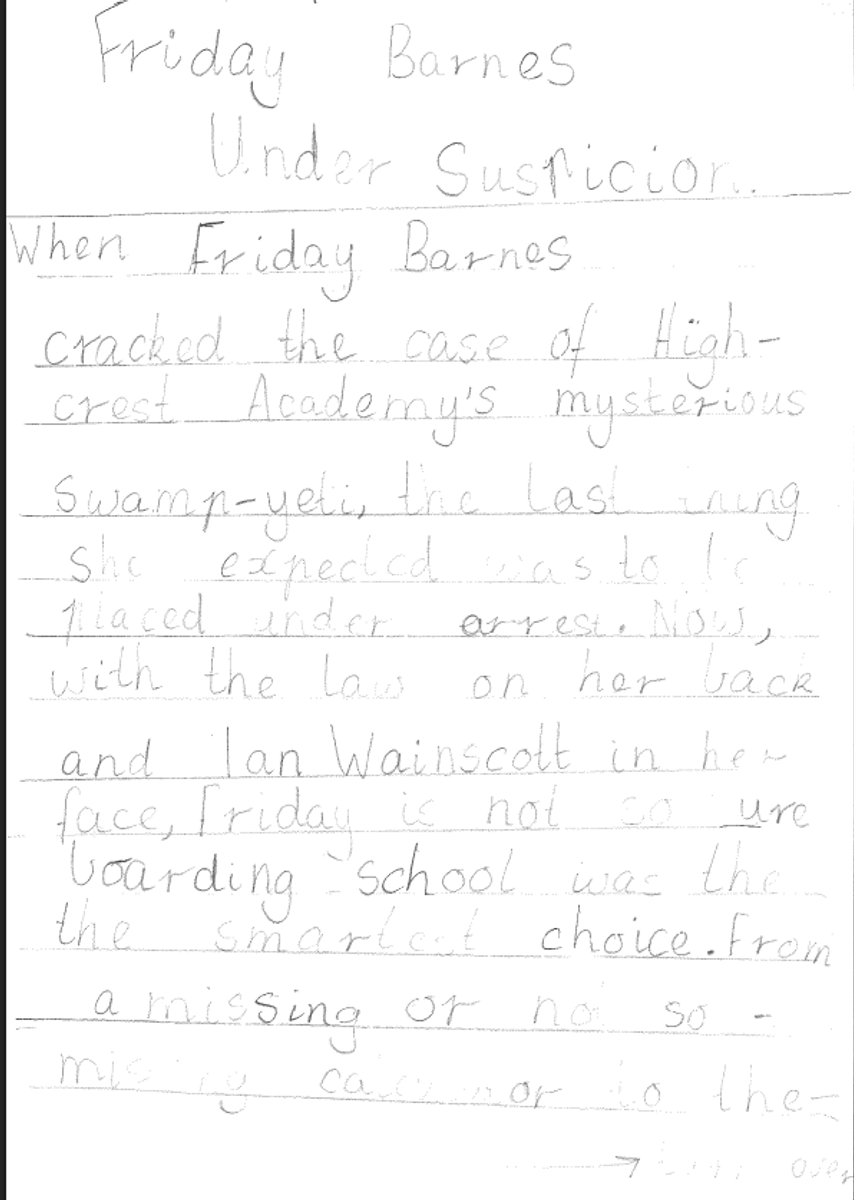 Friday Barnes
Under Suspicion.
When Friday Barnes
cracked the case of High-
crest Academy's mysterious
swamp-yeti, the last thing
she expected was to be
placed under arrest. Now,
with the law on her back
and Ian Wainscott in her
face, Friday is not so ure
boarding school was the
the smartest choice. From
a missing or not so -
missing calculator to the-
→ turn over